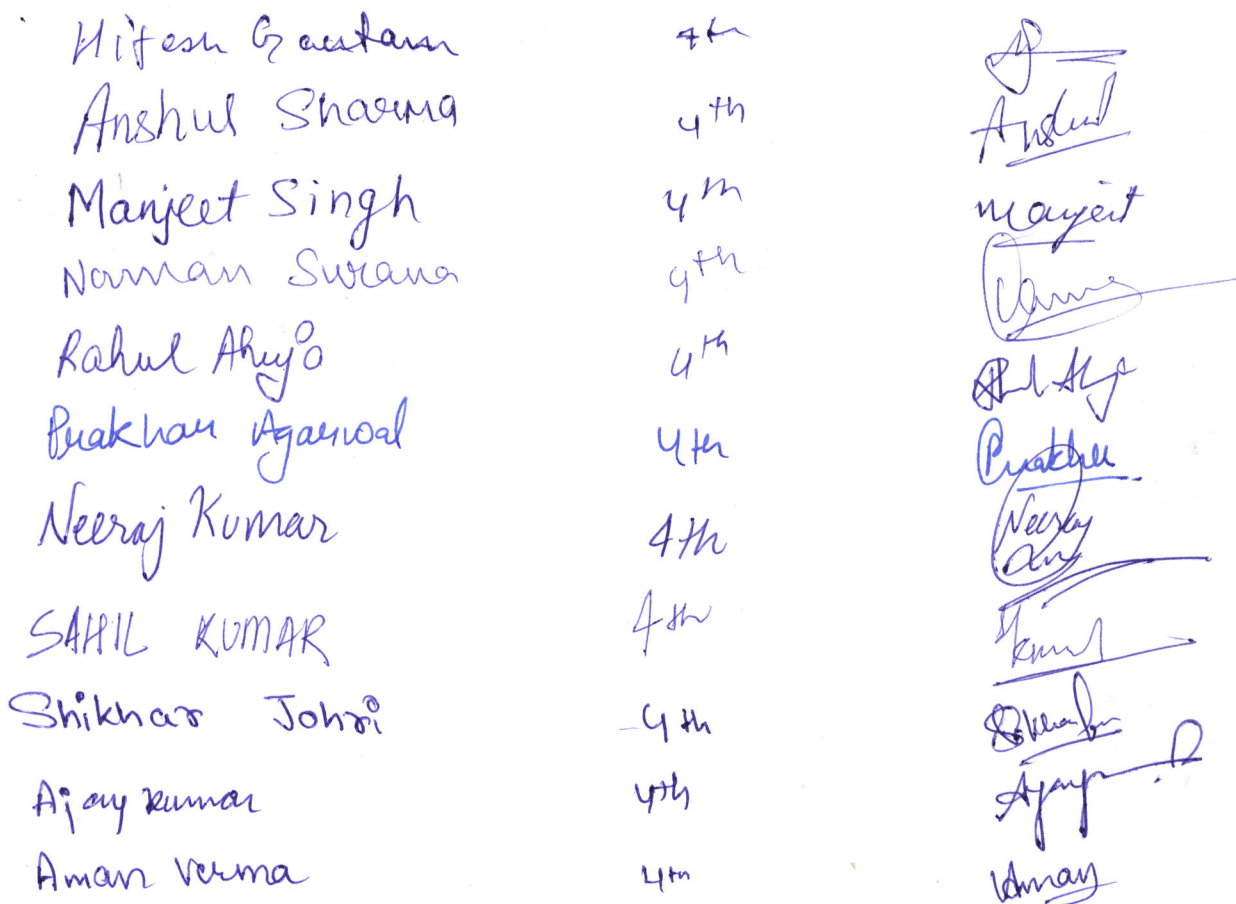 Hitesh Gautam 4th
Anshul Sharma 4th Anshul
Manjeet Singh 4th Manjeet
Naman Surana 4th
Rahul Ahuja 4th
Prakhar Agarwal 4th Prakhar
Neeraj Kumar 4th Neeraj
SAHIL KUMAR 4th
Shikhar Johri 4th
Ajay Kumar 4th
Aman Verma 4th Aman